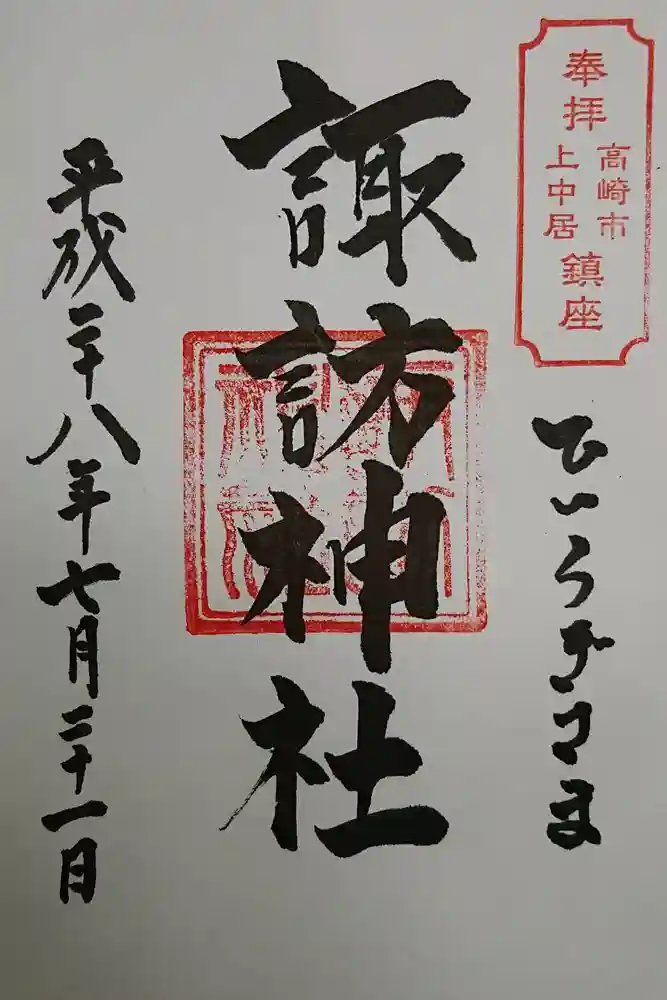 奉拝
高崎市
上中居
鎮座
ひいらぎさま
諏訪神社
平成二十八年七月二十一日